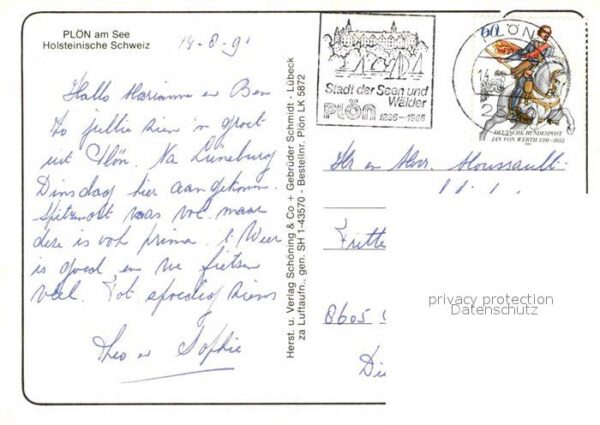 PLÖN am See
Holsteinische Schweiz
14-8-91
Hallo Marianne en Ben
Zo jullie zien 'n groet
uit Plön. Na Lüneburg
Dinsdag hier aangekomen.
Spitzenort was vol maar
deze is ook prima. 't Weer
is goed en we fietsen
veel. Tot spoedig ziens
Theo en Sophie
Herst. u. Verlag Schöning & Co + Gebrüder Schmidt - Lübeck
za Luftaufn., gen. SH 1-43570 - Bestellnr. Plön LK 5872
Stadt der Seen und
Wälder
Plön 1236-1986
PLÖN
60
14
2
DEUTSCHE BUNDESPOST
JAN VON WERTH 1591-1652
Hr en Mevr.
8605
privacy protection
Datenschutz